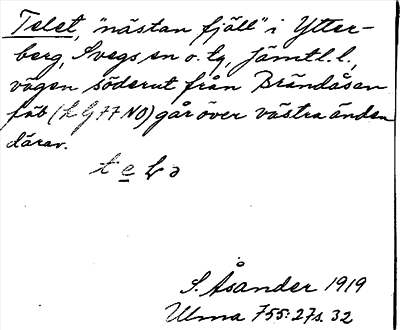 Telet, "nästan fjäll" i Ytter-
berg, Svegs sn o. tg, Jämtl. l.,
vägen söderut från Brändåsen
fäb (k G 77 NO) går över västra änden
därav.
S. Åsander 1919
Ulma 755:27 s. 32